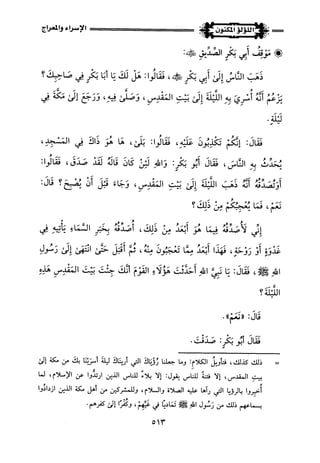 اللؤلؤ المكنون
الإسراء والمعراج
مَوْقِفُ أَبِي بَكْرٍ الصِّدِّيقِ ﷺ:
ذَهَبَ النَّاسُ إِلَى أَبِي بَكْرٍ ﷺ، فَقَالُوا: هَلْ لَكَ يَا أَبَا بَكْرٍ فِي صَاحِبِكَ؟
يَزْعُمُ أَنَّهُ أُسْرِيَ بِهِ اللَّيْلَةَ إِلَى بَيْتِ المَقْدِسِ، وَصَلَّى فِيهِ، وَرَجَعَ إِلَى مَكَّةَ فِي
لَيْلَةٍ.
فَقَالَ: إِنَّكُمْ تَكْذِبُونَ عَلَيْهِ، فَقَالُوا: بَلَى، هَا هُوَ ذَاكَ فِي المَسْجِدِ،
يُحَدِّثُ بِهِ النَّاسَ، فَقَالَ أَبُو بَكْرٍ: وَاللهِ لَئِنْ كَانَ قَالَهُ لَقَدْ صَدَقَ، فَقَالُوا:
أَوَتُصَدِّقُهُ أَنَّهُ ذَهَبَ اللَّيْلَةَ إِلَى بَيْتِ المَقْدِسِ، وَجَاءَ قَبْلَ أَنْ يُصْبِحَ؟ قَالَ:
نَعَمْ، فَمَا يُعْجِبُكُمْ مِنْ ذَلِكَ؟
إِنِّي لَأُصَدِّقُهُ فِيمَا هُوَ أَبْعَدُ مِنْ ذَلِكَ، أُصَدِّقُهُ بِخَبَرِ السَّمَاءِ يَأْتِيهِ فِي
غَدْوَةٍ أَوْ رَوْحَةٍ، فَهَذَا أَبْعَدُ مِمَّا تَعْجَبُونَ مِنْهُ، ثُمَّ أَقْبَلَ حَتَّى انْتَهَى إِلَى رَسُولِ
اللهِ ﷺ، فَقَالَ: يَا نَبِيَّ اللهِ أَحَدَّثْتَ هَؤُلَاءِ القَوْمَ أَنَّكَ جِئْتَ بَيْتَ المَقْدِسِ هَذِهِ
اللَّيْلَةَ؟
قَالَ: «نَعَمْ».
فَقَالَ أَبُو بَكْرٍ: صَدَقْتَ.
= ذلك كذلك، فتأويلُ الكلام: وما جعلنا رُؤْيَاكَ التي أَريناكَ ليلةَ أسرَيْنَا بكَ من مكة إلى
بيت المقدس، إلا فتنةً للناس يقول: إلا بلاءً للناس الذين ارتدُّوا عن الإسلام، لما
أُخبِروا بالرؤيا التي رآها عليه الصلاة والسلام، وللمشركين من أهل مكة الذين ازدادُوا
بسماعهم ذلك من رَسُول الله ﷺ تَمَادِيًا في غَيِّهم، وكُفْرًا إلى كفرهم.
٥١٣